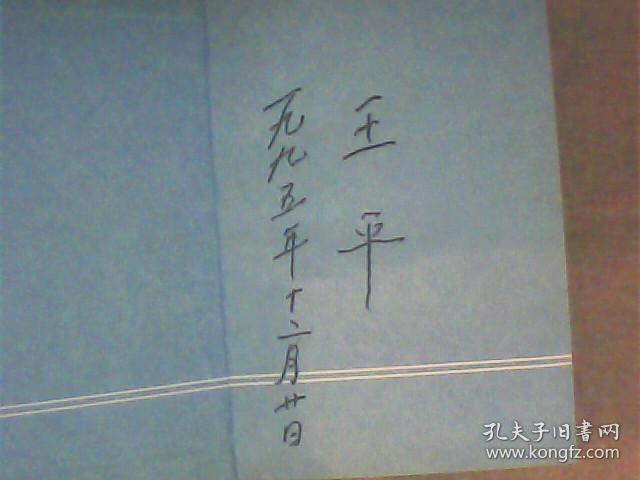 王平
一九九五年十二月廿日
孔夫子旧書网
www.kongfz.com